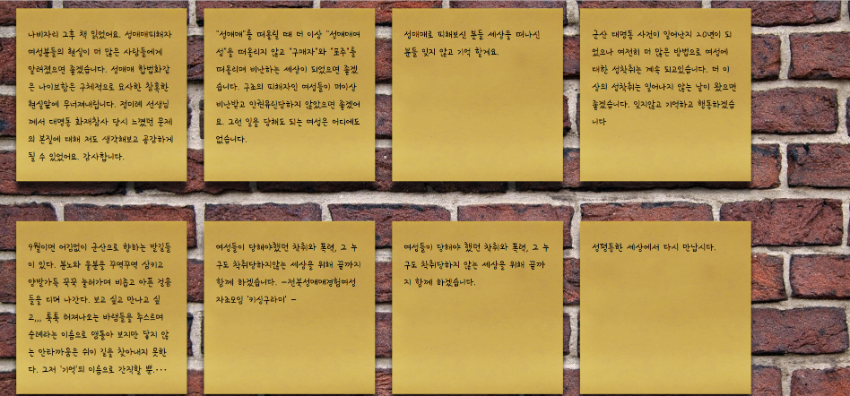 나비자리 그후 책 읽었어요. 성매매피해자
여성분들의 현실이 더 많은 사람들에게
알려졌으면 좋겠습니다. 성매매 합법화같
은 나이브함은 구체적으로 묘사한 참혹한
현실앞에 무너져내립니다. 전미례 선생님
께서 대명동 화재참사 당시 느꼈던 문제
의 본질에 대해 저도 생각해보고 공감하게
될 수 있었어요. 감사합니다.
"성매매"를 떠올릴 때 더 이상 "성매매여
성"을 떠올리지 않고 "구매자"와 "포주"를
떠올리며 비난하는 세상이 되었으면 좋겠
습니다. 구조의 피해자인 여성들이 더이상
비난받고 인권유린당하지 않았으면 좋겠어
요. 그런 일을 당해도 되는 여성은 어디에도
없습니다.
성매매로 피해보신 분들 세상을 떠나신
분들 잊지 않고 기억 할게요.
군산 대명동 사건이 일어난지 20년이 되
었으나 여전히 더 많은 방법으로 여성에
대한 성착취는 계속 되고있습니다. 더 이
상의 성착취는 일어나지 않는 날이 왔으면
좋겠습니다. 잊지않고 기억하고 행동하겠습
니다
9월이면 어김없이 군산으로 향하는 발길들
이 있다. 분노와 울분을 꾸역꾸역 삼키고
양발가득 꾹꾹 눌러가며 버겁고 아픈 걸음
들을 디뎌 나간다. 보고 싶고 만나고 싶
고,,, 툭툭 터져나오는 바램들을 추스르며
순례라는 이름으로 맴돌아 보지만 닿지 않
는 안타까움은 쉬이 길을 찾아내지 못한
다. 그저 '기억'의 이름으로 간직할 뿐....
여성들이 당해야했던 착취와 폭력, 그 누
구도 착취당하지않는 세상을 위해 끝까지
함께 하겠습니다. -전북성매매경험여성
자조모임 '키싱구라미' -
여성들이 당해야 했던 착취와 폭력, 그 누
구도 착취당하지 않는 세상을 위해 끝까
지 함께 하겠습니다.
성평등한 세상에서 다시 만납시다.